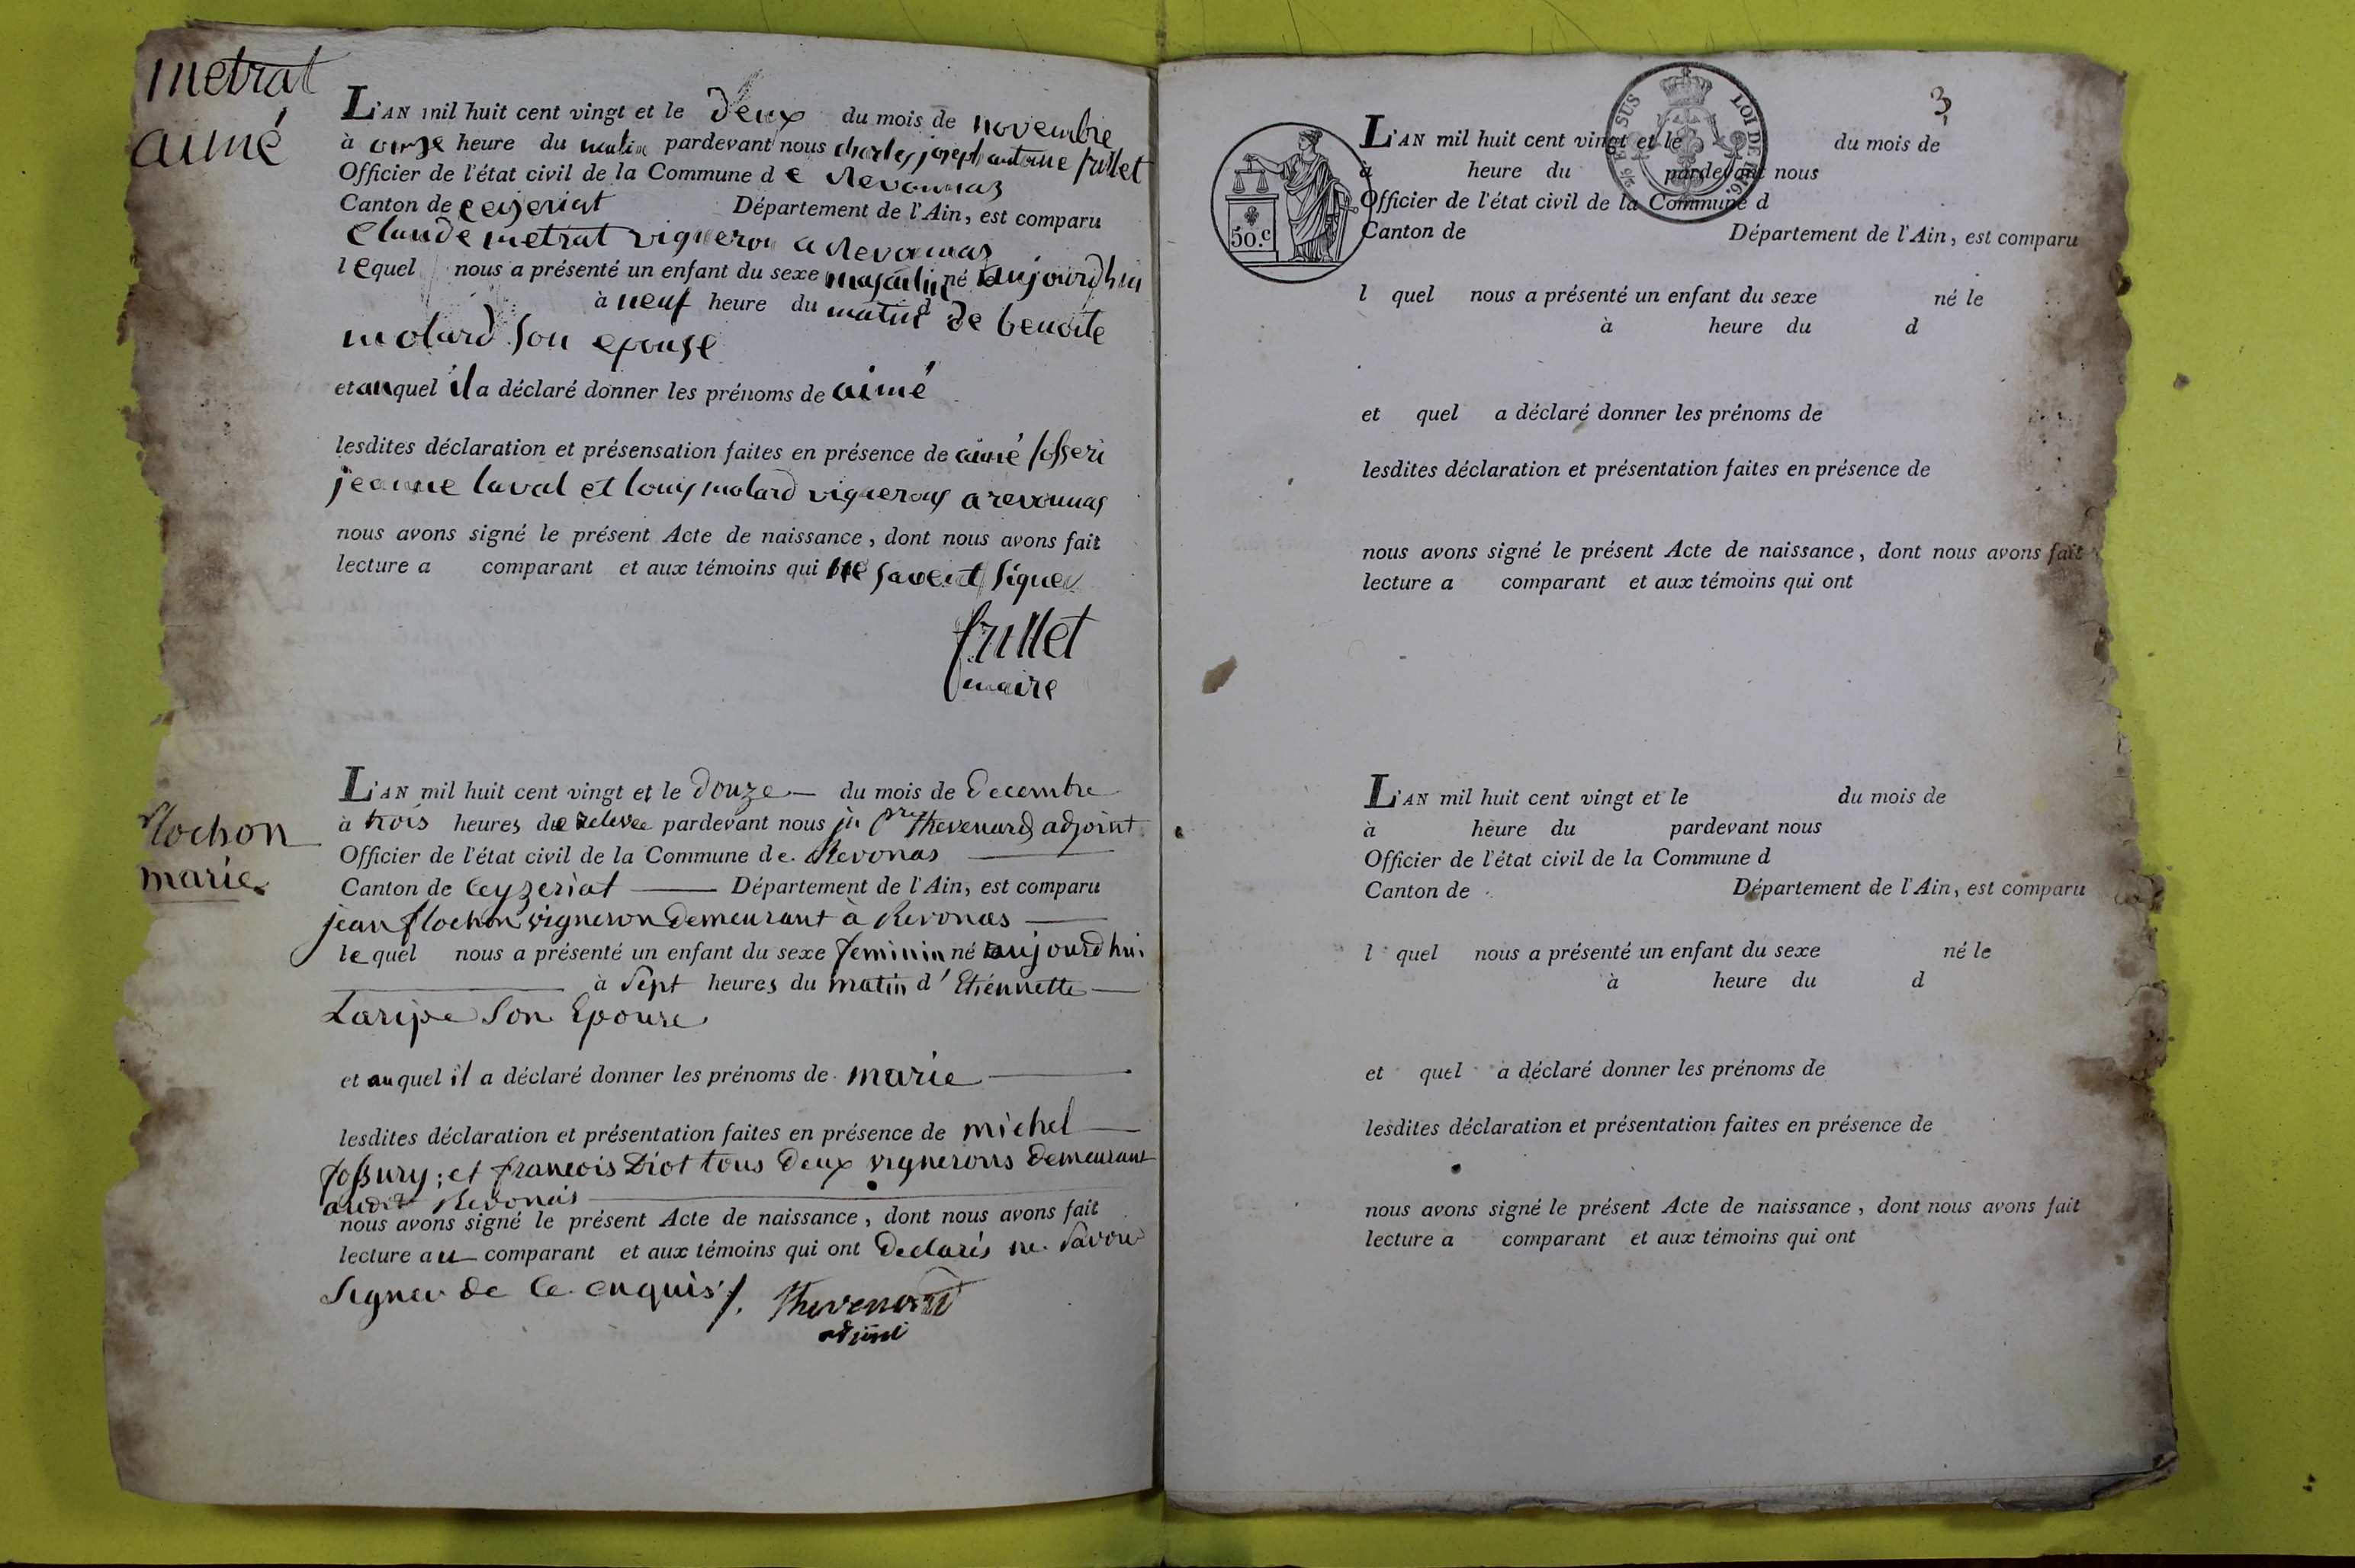 metrat
aimé
L'AN mil huit cent vingt et le deux du mois de novembre
à onze heure du matin pardevant nous charles joseph antoine frillet
Officier de l'état civil de la Commune de Revonnas
Canton de ceizeriat Département de l'Ain, est comparu
Claude metrat vigneron a Revonnas
lequel nous a présenté un enfant du sexe masculin né aujourdhui
à neuf heure du matin de benoite
molard son epouse
et auquel il a déclaré donner les prénoms de aimé
lesdites déclaration et présensation faites en présence de aimé
jeanne laval et louis molard vignerons a revonnas
nous avons signé le présent Acte de naissance, dont nous avons fait
lecture a comparant et aux témoins qui ne savent signer
frillet
maire
flochon
marie
L'AN mil huit cent vingt et le douze du mois de Decembre
à trois heures de relevée pardevant nous jn Pre Thevenard adjoint
Officier de l'état civil de la Commune de Revonas
Canton de Ceyzeriat Département de l'Ain, est comparu
jean flochon vigneron demeurant à Revonas
lequel nous a présenté un enfant du sexe feminin né aujourdhui
à Sept heures du matin d'Etiennette
Laripe Son Epouse
et auquel il a déclaré donner les prénoms de marie
lesdites déclaration et présentation faites en présence de michel
Jossury; et francois Diot tous deux vignerons demeurant
audit Revonas
nous avons signé le présent Acte de naissance, dont nous avons fait
lecture au comparant et aux témoins qui ont Declarés ne Savoir
Signer de ce enquis /.
Thevenard
adjoint
3
ET SUS LOI DE 1816.
50.c
L'AN mil huit cent vingt et le du mois de
à heure du pardevant nous
Officier de l'état civil de la Commune d
Canton de Département de l'Ain, est comparu
l quel nous a présenté un enfant du sexe né le
à heure du d
et quel a déclaré donner les prénoms de
lesdites déclaration et présentation faites en présence de
nous avons signé le présent Acte de naissance, dont nous avons fait
lecture a comparant et aux témoins qui ont
L'AN mil huit cent vingt et le du mois de
à heure du pardevant nous
Officier de l'état civil de la Commune d
Canton de Département de l'Ain, est comparu
l quel nous a présenté un enfant du sexe né le
à heure du d
et quel a déclaré donner les prénoms de
lesdites déclaration et présentation faites en présence de
nous avons signé le présent Acte de naissance, dont nous avons fait
lecture a comparant et aux témoins qui ont